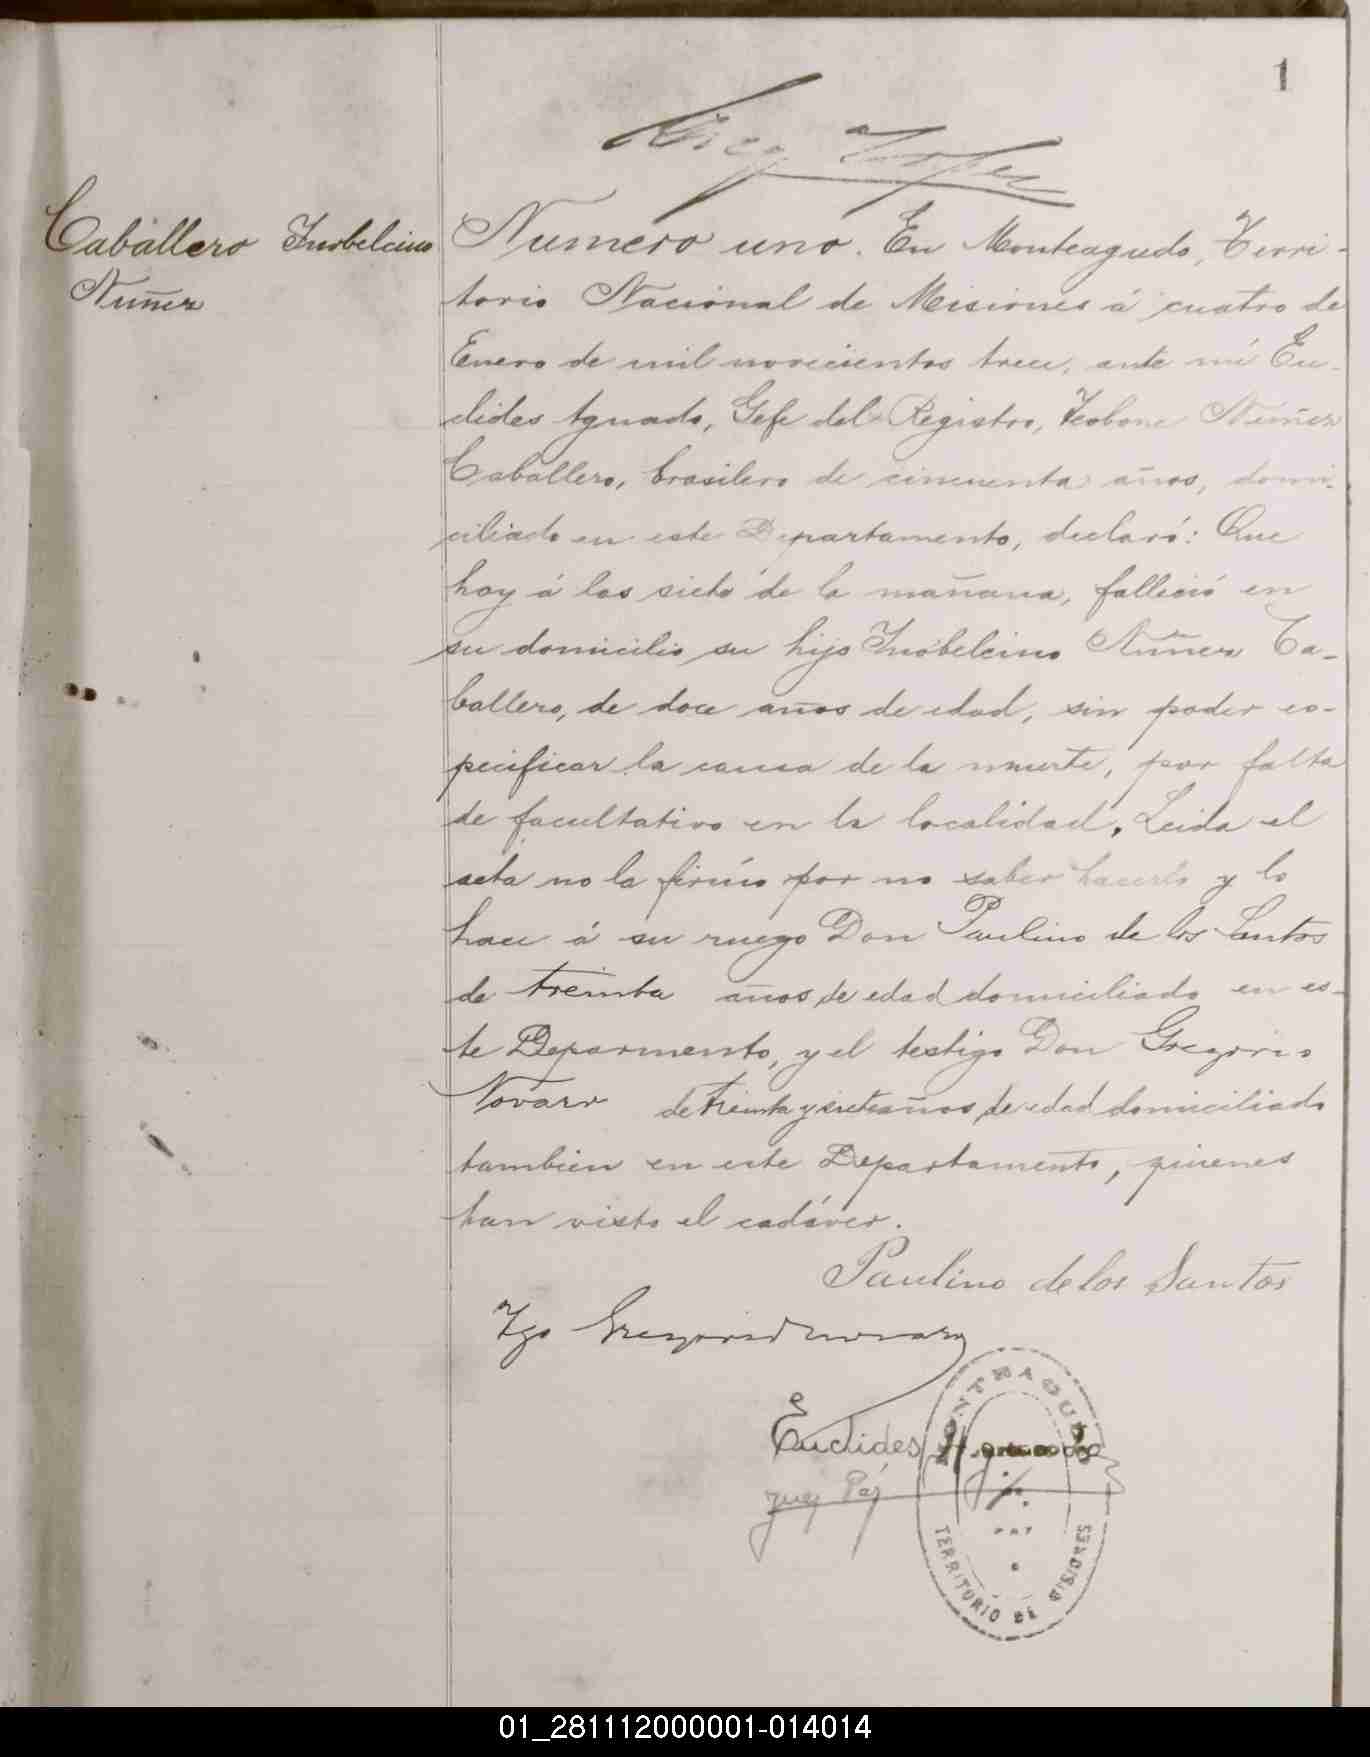 1
Caballero
Nuñez
Numero uno. En Monteagudo, Terri-
torio Nacional de Misiones á cuatro de
Enero de mil novecientos trece, ante mí Eu-
clides Aguado, Gefe del Registro, Nuñez
Caballero, brasilero de cincuenta años, domi-
ciliado en este Departamento, declaró: Que
hoy á las siete de la mañana, falleció en
su domicilio su hijo Nuñez Ca-
ballero, de doce años de edad, sin poder es-
pecificar la causa de la muerte, por falta
de facultativo en la localidad. Leida el
acta no la firmo por no saber hacerlo y lo
hace á su ruego Don Paulino de los Santos
de treinta años de edad domiciliado en es-
te Deparmento, y el testigo Don Gregorio
Novaro de treinta y siete años de edad domiciliado
tambien en este Departamento, quienes
han visto el cadáver.
Paulino de los Santos
Tgo Gregorio
Euclides Aguado
Juez Paz
MONTEAGUDO
TERRITORIO DE MISIONES
01_281112000001-014014